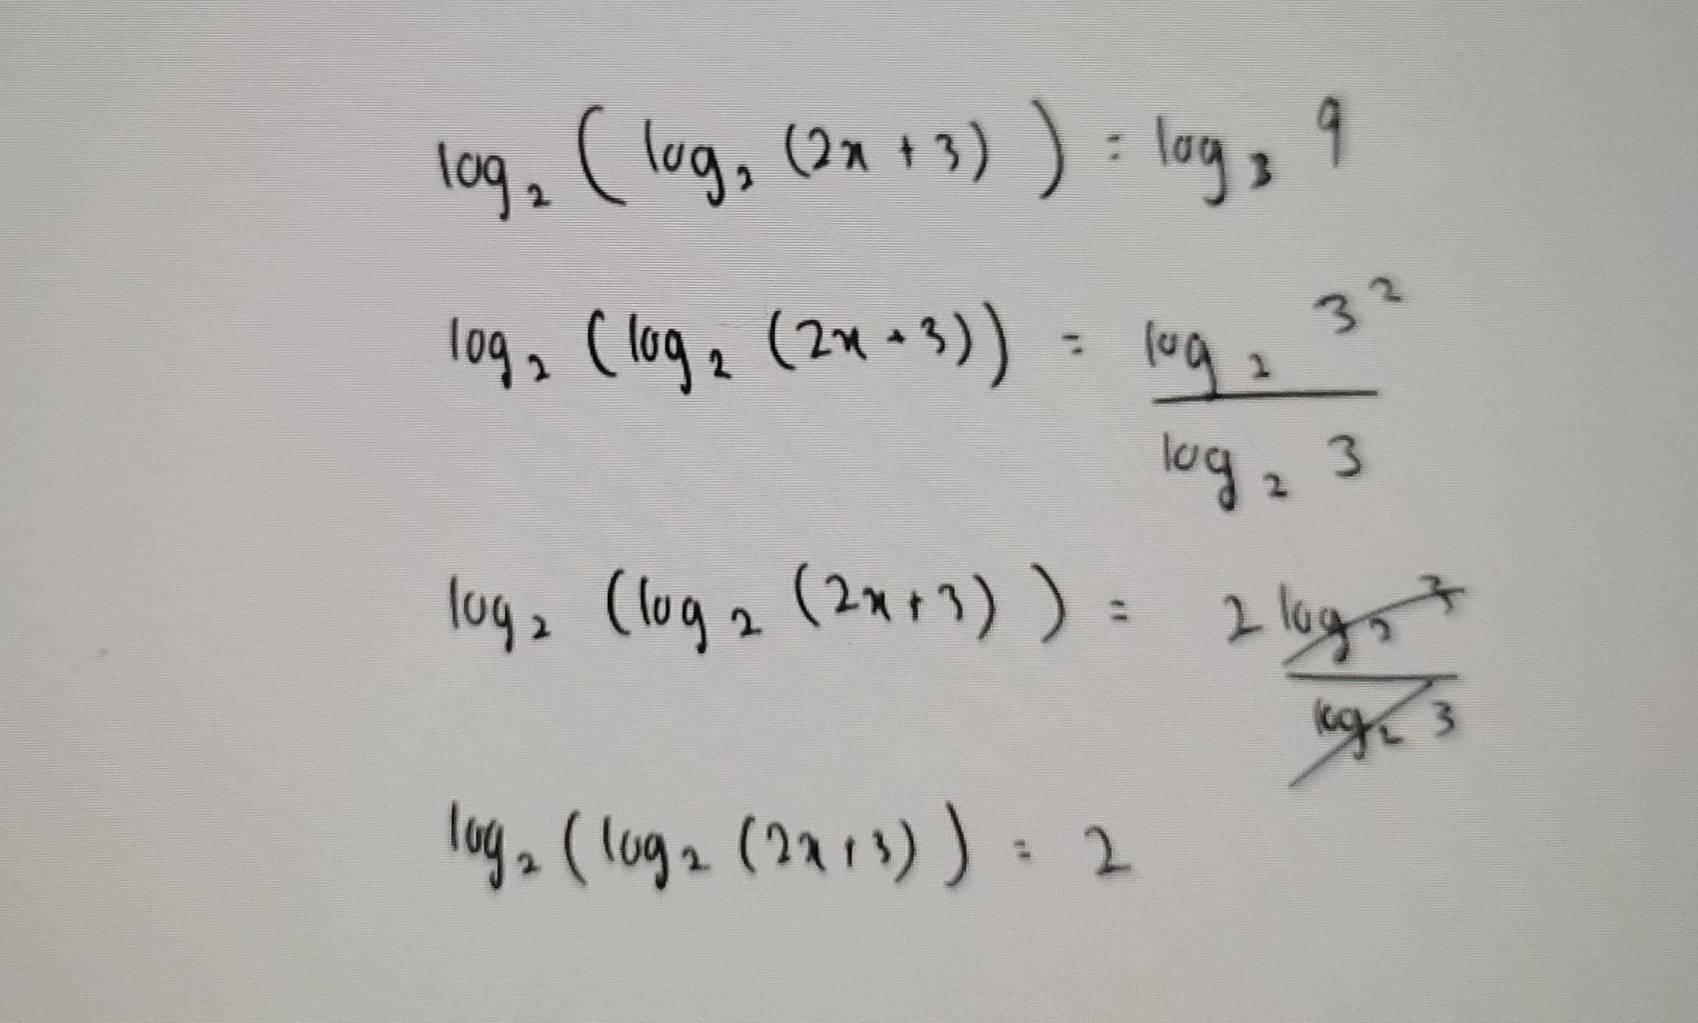 log₂ ( log₂ (2x + 3) ) = log₃ 9
log₂ ( log₂ (2x + 3)) = log₂ 3² / log₂ 3
log₂ ( log₂ (2x + 3) ) = 2 log₂ 3 / log₂ 3
log₂ ( log₂ (2x + 3) ) = 2